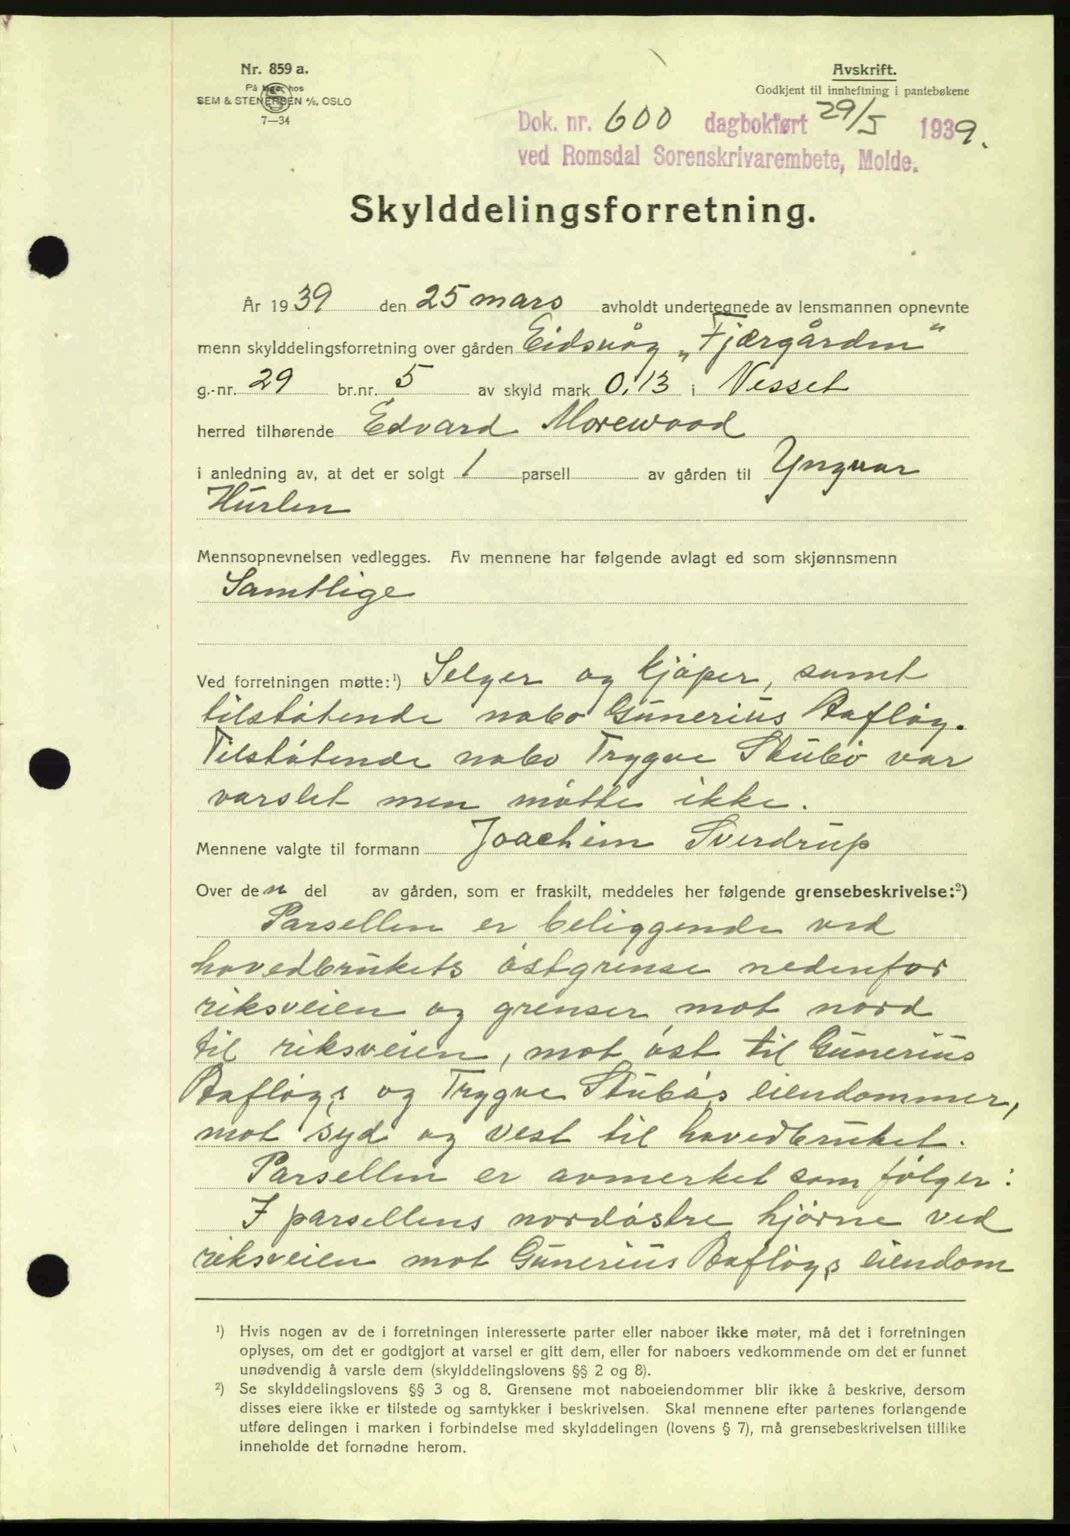 Nr. 859 a.
På lager hos
SEM & STENERSEN A/S, OSLO
7—34
Avskrift.
Godkjent til innheftning i pantebøkene
Dok. nr. 600 dagbokført 29/5 1939.
ved Romsdal Sorenskrivarembete, Molde.
Skylddelingsforretning.
År 1939 den 25 mars avholdt undertegnede av lensmannen opnevnte
menn skylddelingsforretning over gården Eidsvåg „Fjærgården“
g.-nr. 29 br.nr. 5 av skyld mark 0,13 i Nesset
herred tilhørende Edvard Morewood
i anledning av, at det er solgt 1 parsell av gården til Yngvar
Hurlen
Mennsopnevnelsen vedlegges. Av mennene har følgende avlagt ed som skjønnsmenn
Samtlige
Ved forretningen møtte:¹) Selger og kjøper, samt
tilstøtende nabo Gunerius Rafløy.
Tilstøtende nabo Trygve Stubø var
varslet men møtte ikke.
Mennene valgte til formann Joachim Sverdrup
Over den del av gården, som er fraskilt, meddeles her følgende grensebeskrivelse:²)
Parsellen er beliggende ved
hovedbrukets østgrense nedenfor
riksveien og grenser mot nord
til riksveien, mot øst til Gunerius
Rafløys og Trygve Stubøs eiendommer,
mot syd og vest til hovedbruket.
Parsellen er avmerket som følger:
I parsellens nordøstre hjørne ved
riksveien mot Gunerius Rafløys eiendom
¹) Hvis nogen av de i forretningen interesserte parter eller naboer ikke møter, må det i forretningen
oplyses, om det er godtgjort at varsel er gitt dem, eller for naboers vedkommende om det er funnet
unødvendig å varsle dem (skylddelingslovens §§ 2 og 8).
²) Se skylddelingslovens §§ 3 og 8. Grensene mot naboeiendommer blir ikke å beskrive, dersom
disses eiere ikke er tilstede og samtykker i beskrivelsen. Skal mennene efter partenes forlangende
utføre delingen i marken i forbindelse med skylddelingen (lovens § 7), må grensebeskrivelsen tillike
inneholde det fornødne herom.